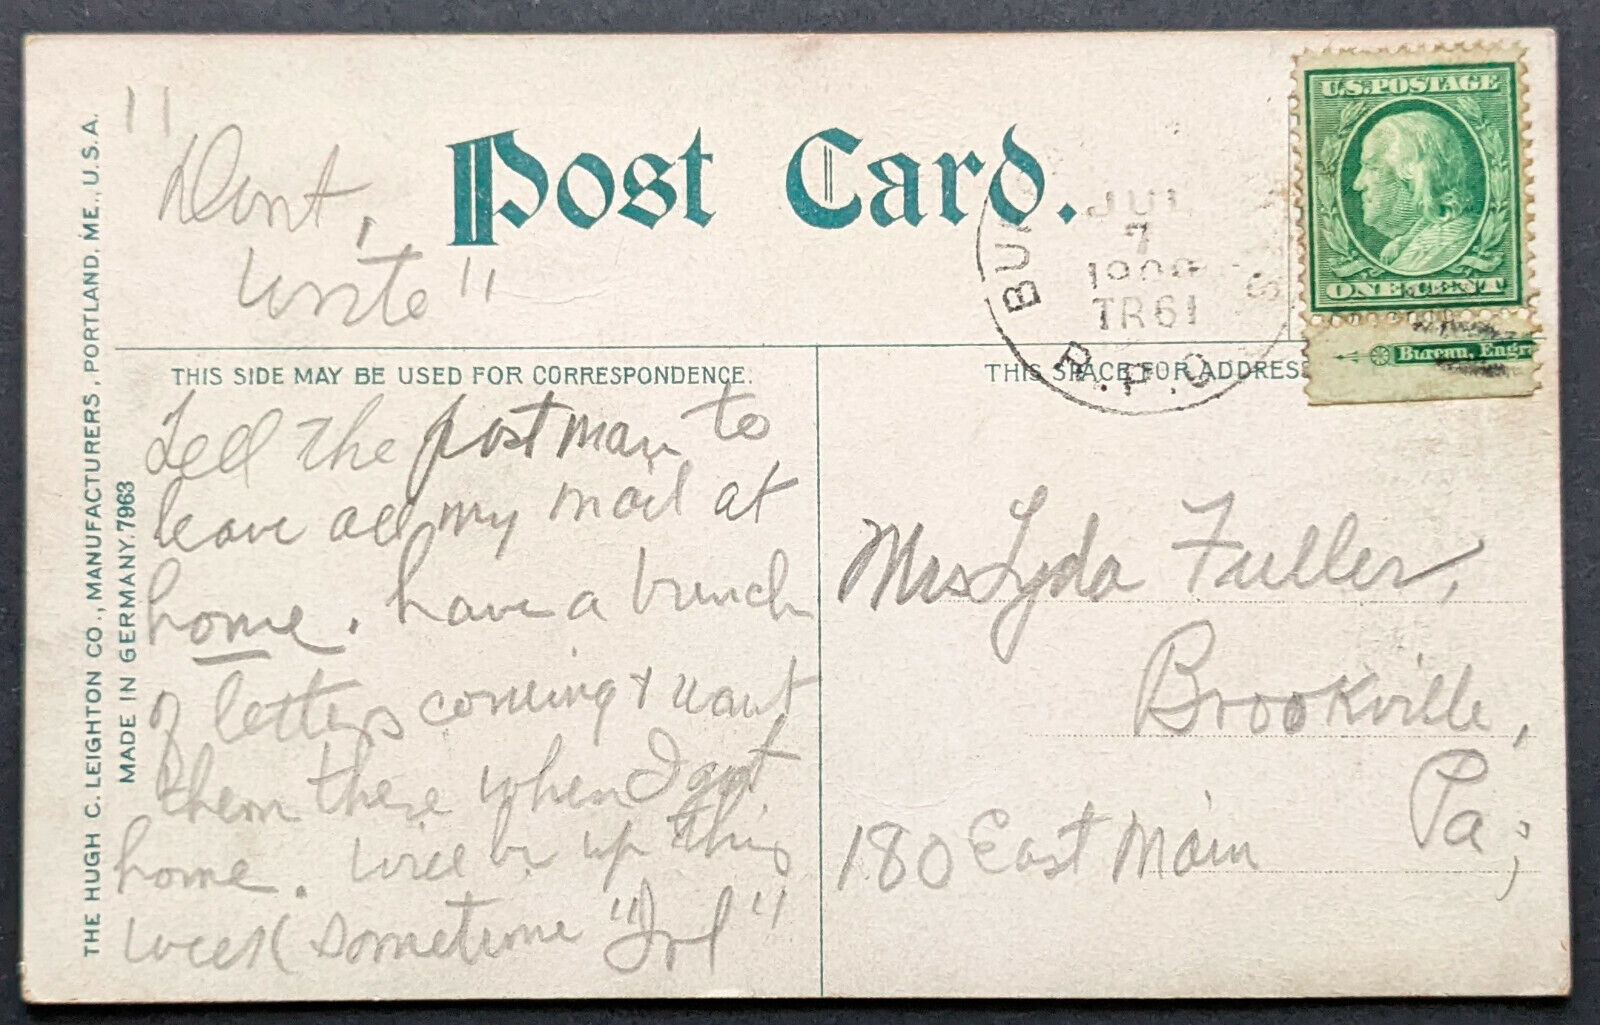 "Dont,
write"
Post Card.
U.S. POSTAGE
ONE CENT
Bureau, Engr
JUL
7
TR 61
R.P.O.
THIS SIDE MAY BE USED FOR CORRESPONDENCE.
THIS SPACE FOR ADDRESS
THE HUGH C. LEIGHTON CO., MANUFACTURERS, PORTLAND, ME., U.S.A.
MADE IN GERMANY. 7963
Tell the postman to
leave all my mail at
home. have a bunch
of letters coming + want
them there when I get
home. Will be up this
week sometime
Mrs Lyda Fuller,
Brookville,
Pa;
180 East Main